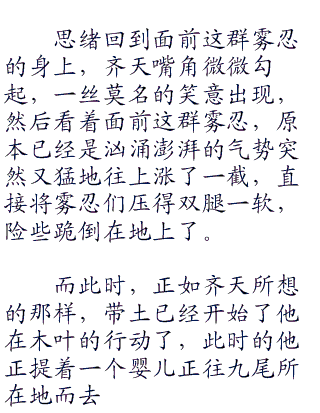 思绪回到面前这群雾忍
的身上，齐天嘴角微微勾
起，一丝莫名的笑意出现，
然后看着面前这群雾忍，原
本已经是汹涌澎湃的气势突
然又猛地往上涨了一截，直
接将雾忍们压得双腿一软，
险些跪倒在地上了。
而此时，正如齐天所想
的那样，带土已经开始了他
在木叶的行动了，此时的他
正提着一个婴儿正往九尾所
在地而去